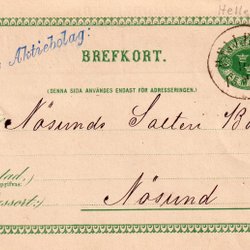 Helle
Aktiebolag:
BREFKORT.
(DENNA SIDA ANVÄNDES ENDAST FÖR ADRESSERINGEN.)
Nösunds Salteri
Nösund